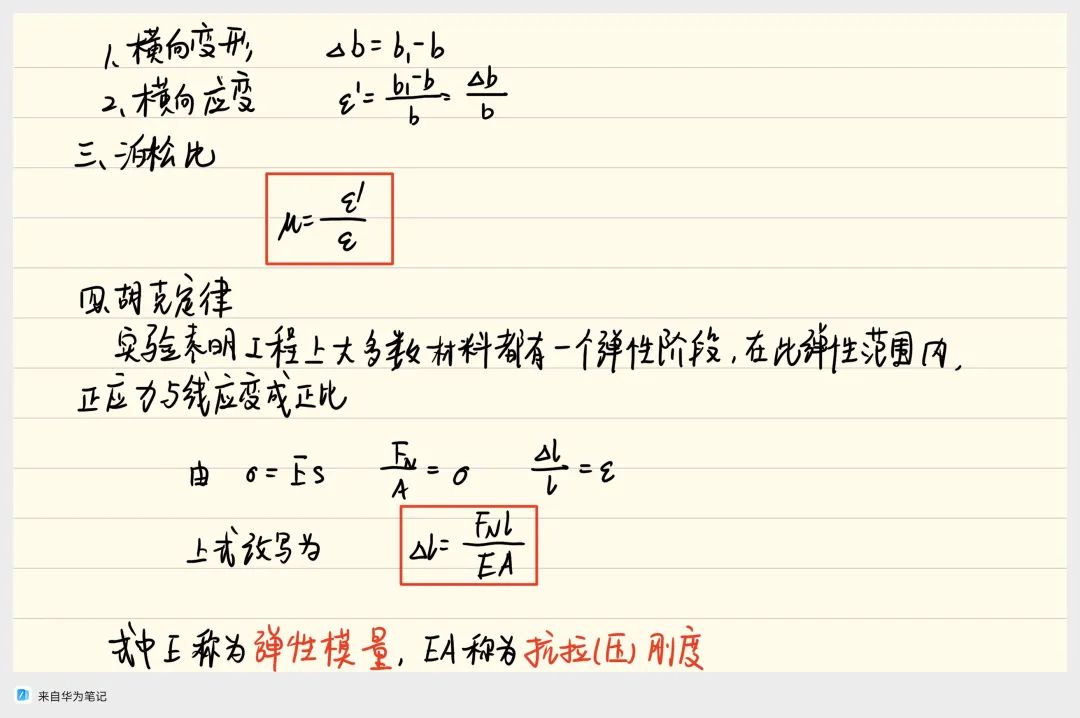 1、横向变形 Δb = b₁-b
2、横向应变 ε' = (b₁-b)/b = Δb/b
三、泊松比
μ = ε'/ε
四、胡克定律
实验表明工程上大多数材料都有一个弹性阶段，在此弹性范围内，
正应力与线应变成正比
由 σ = Es F_N/A = σ Δl/l = ε
上式改写为 Δl = F_Nl/EA
式中E称为弹性模量，EA称为抗拉(压)刚度
来自华为笔记